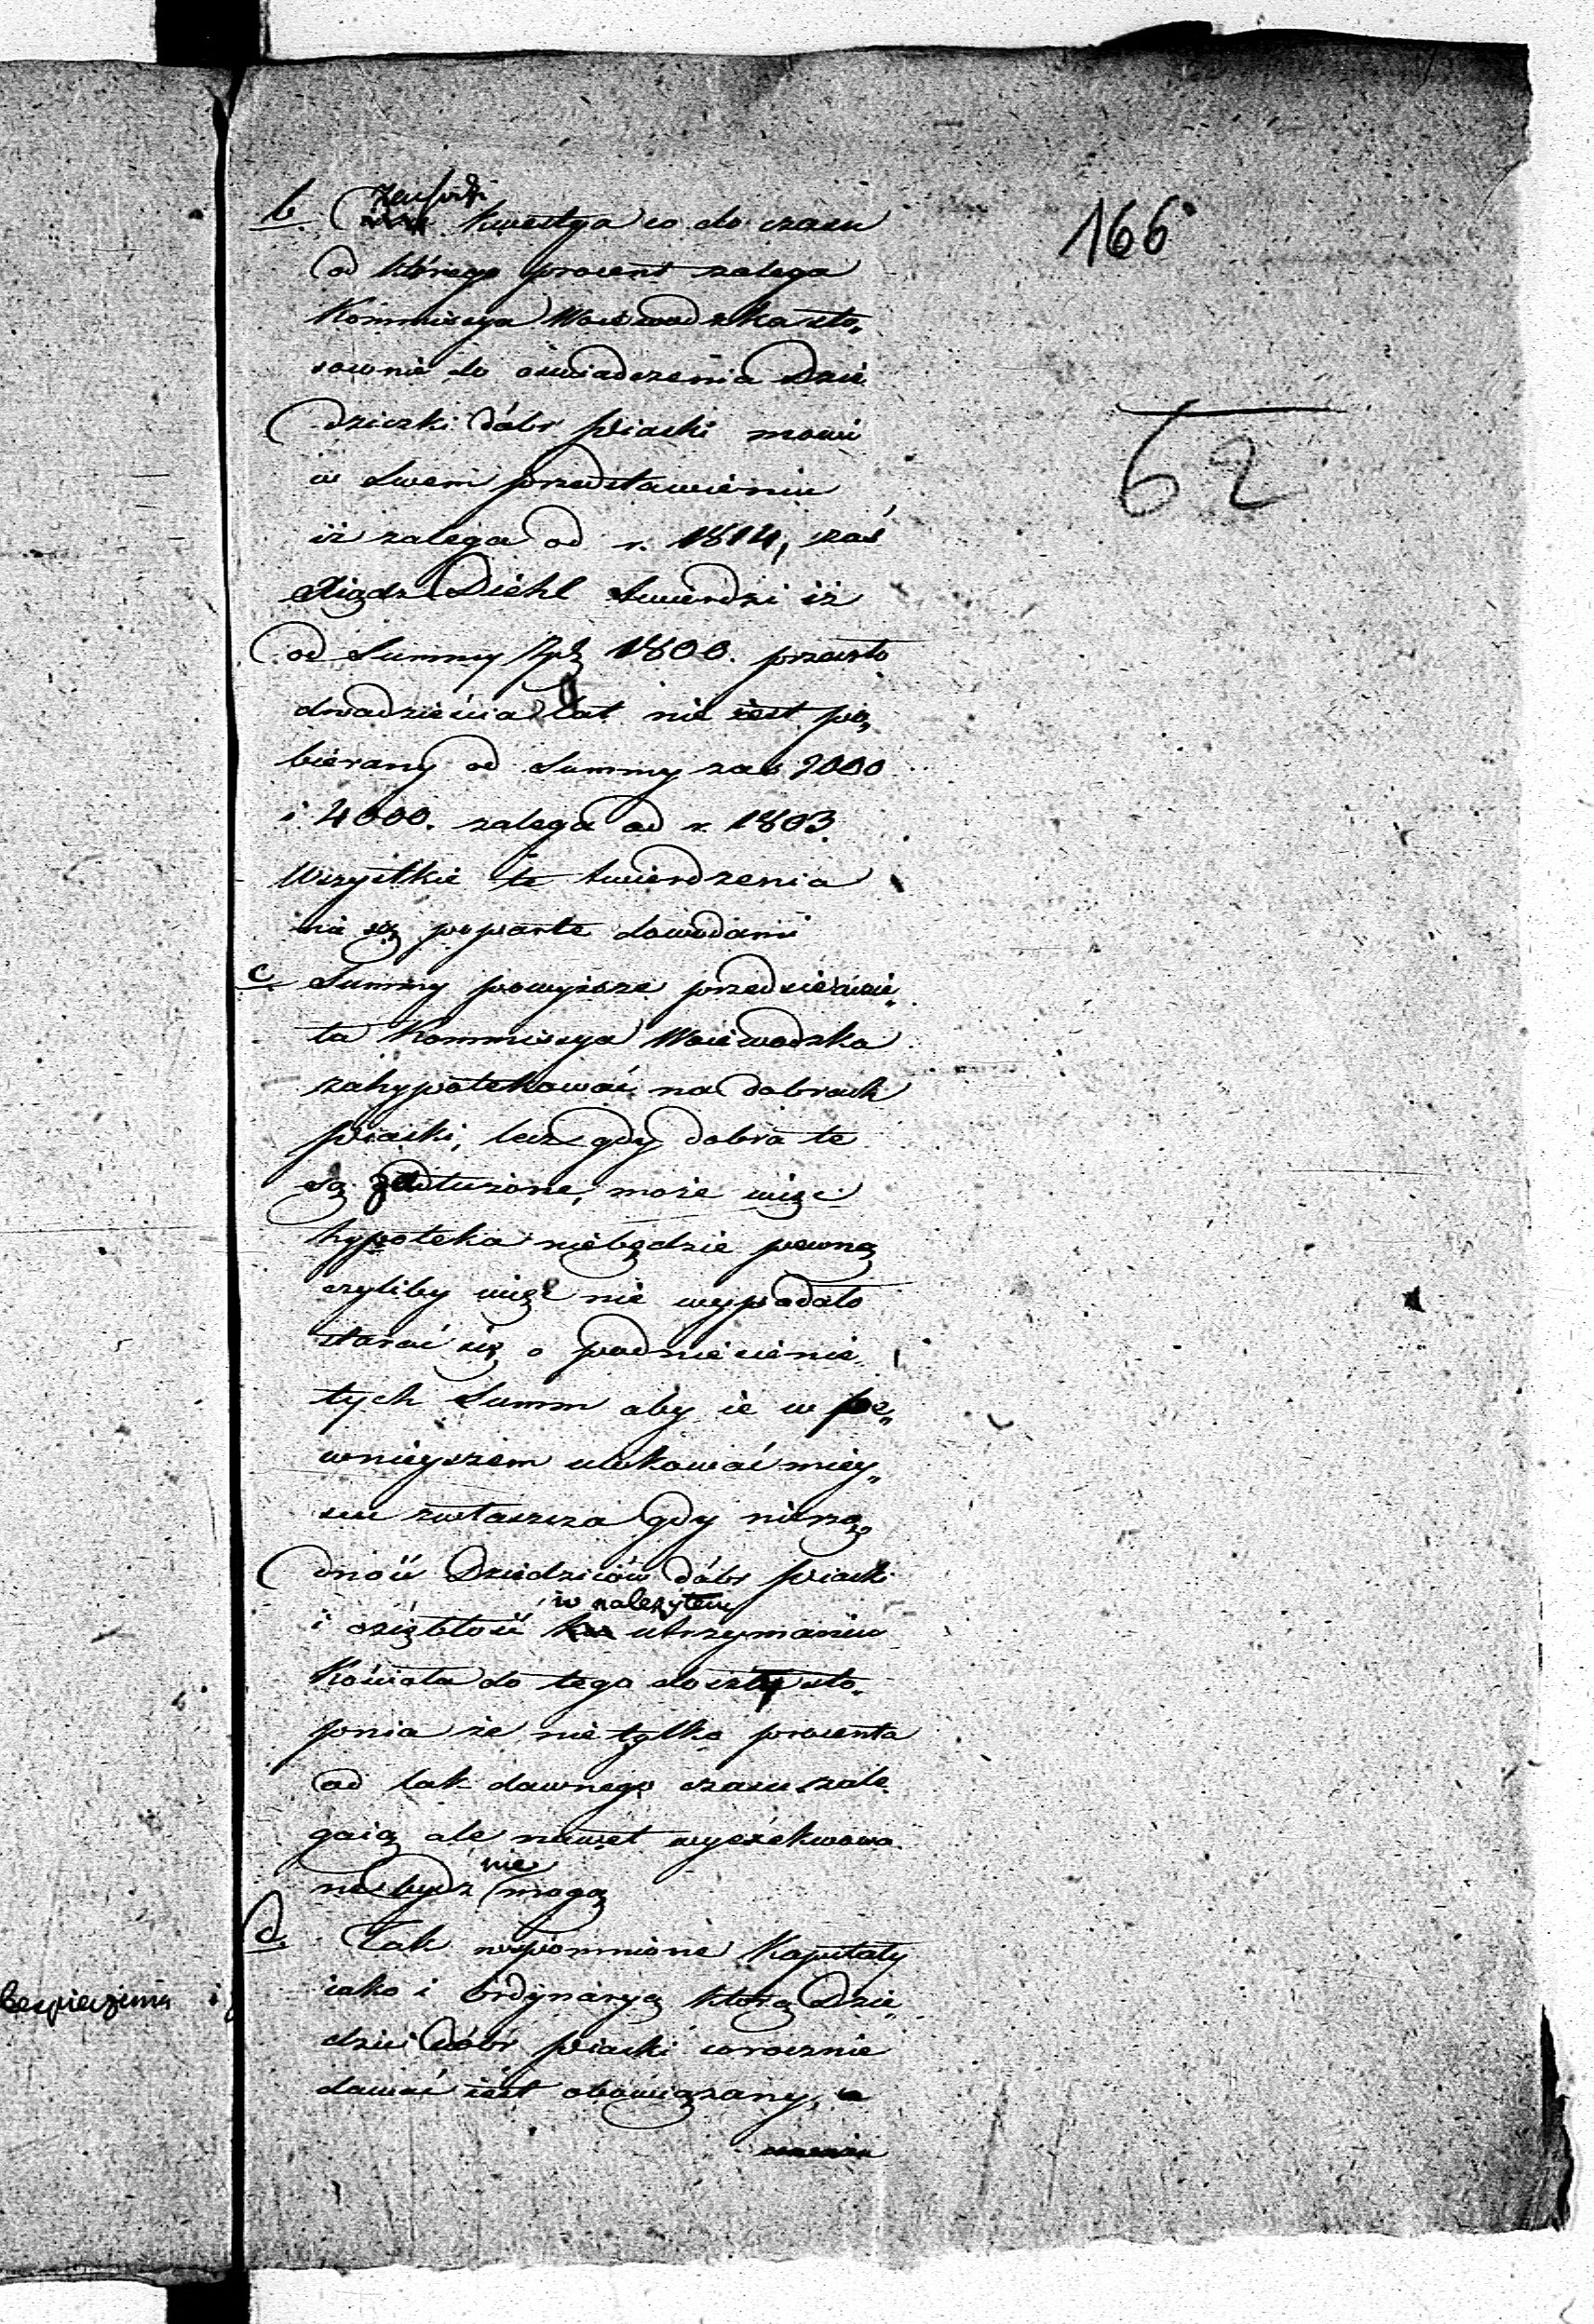 166
62
b. Zachodzi kwestya co do czasu
od którego procent zalega
Kommissya Woiewodzka sto„
sownie do oświadczenia Dzie
dziczki dóbr Piaski mowi
w Swem przedstawieniu
iż zalega od r. 1814, zaś
Xiądz Diehl twierdzi iż
od Summy Zpl 1800. przeszło
dwadzieścia lat nie iest po„
bierany od Summy zaś 2000
i 4000. zalega od r. 1803
Wszystkie te twierdzenia
nie są poparte dowodami
c. Summy powyższe przedsiewzie„
ta Kommissya Woiewodzka
zahypotekować na dobrach
Piaski, lecz gdy dobra te
są zadłużone, może więc
hypoteka niebędzie pewną
czyliby więc nie wypadało
starać się o podniesienie
tych Summ aby ie w pe„
wnieyszem ulokować miey„
scu zwłaszcza gdy nierzą„
dność Dziedziców dóbr Piaski
i oziębłość w należytem utrzymaniu
Kościoła do tego doszły sto„
pnia że nie tylko procenta
od tak dawnego czasu zale
gaią ale nawet wyexekwowa
ne bydź nie mogą
d. Tak wspomnione Kapitały
iako i ordynaryą którą Dzie
dzic dóbr Piaski corocznie
dawać iest obowiązany,